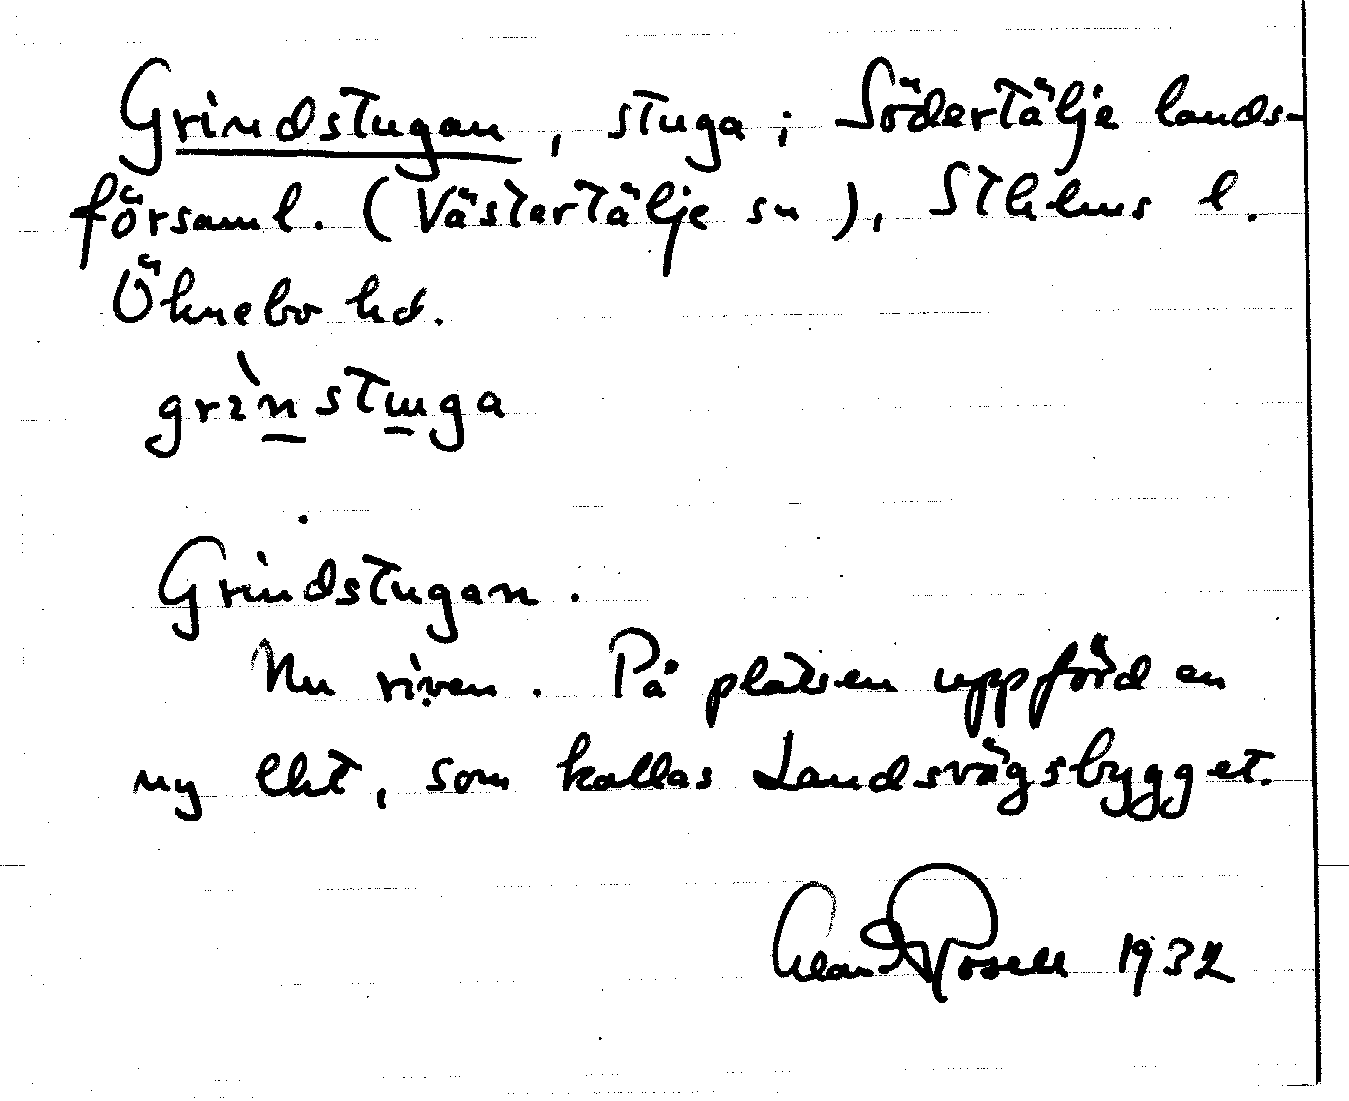 Grindstugan, stuga; Södertälje lands-
församl. (Västertälje sn), Sthlms l.
Öknebo hd.
grìnstuga
Grindstugan.
Nu riven. På platsen uppförd en
ny lht, som kallas Landsvägsbygget.
Rosell 1932